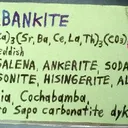 BANKITE
Ca)₃(Sr,Ba,Ce,La,Th)₃(CO₃)
reddish
GALENA, ANKERITE, SODA
SONITE, HISINGERITE, AL
ia, Cochabamba,
ro Sapo carbonatite dyk